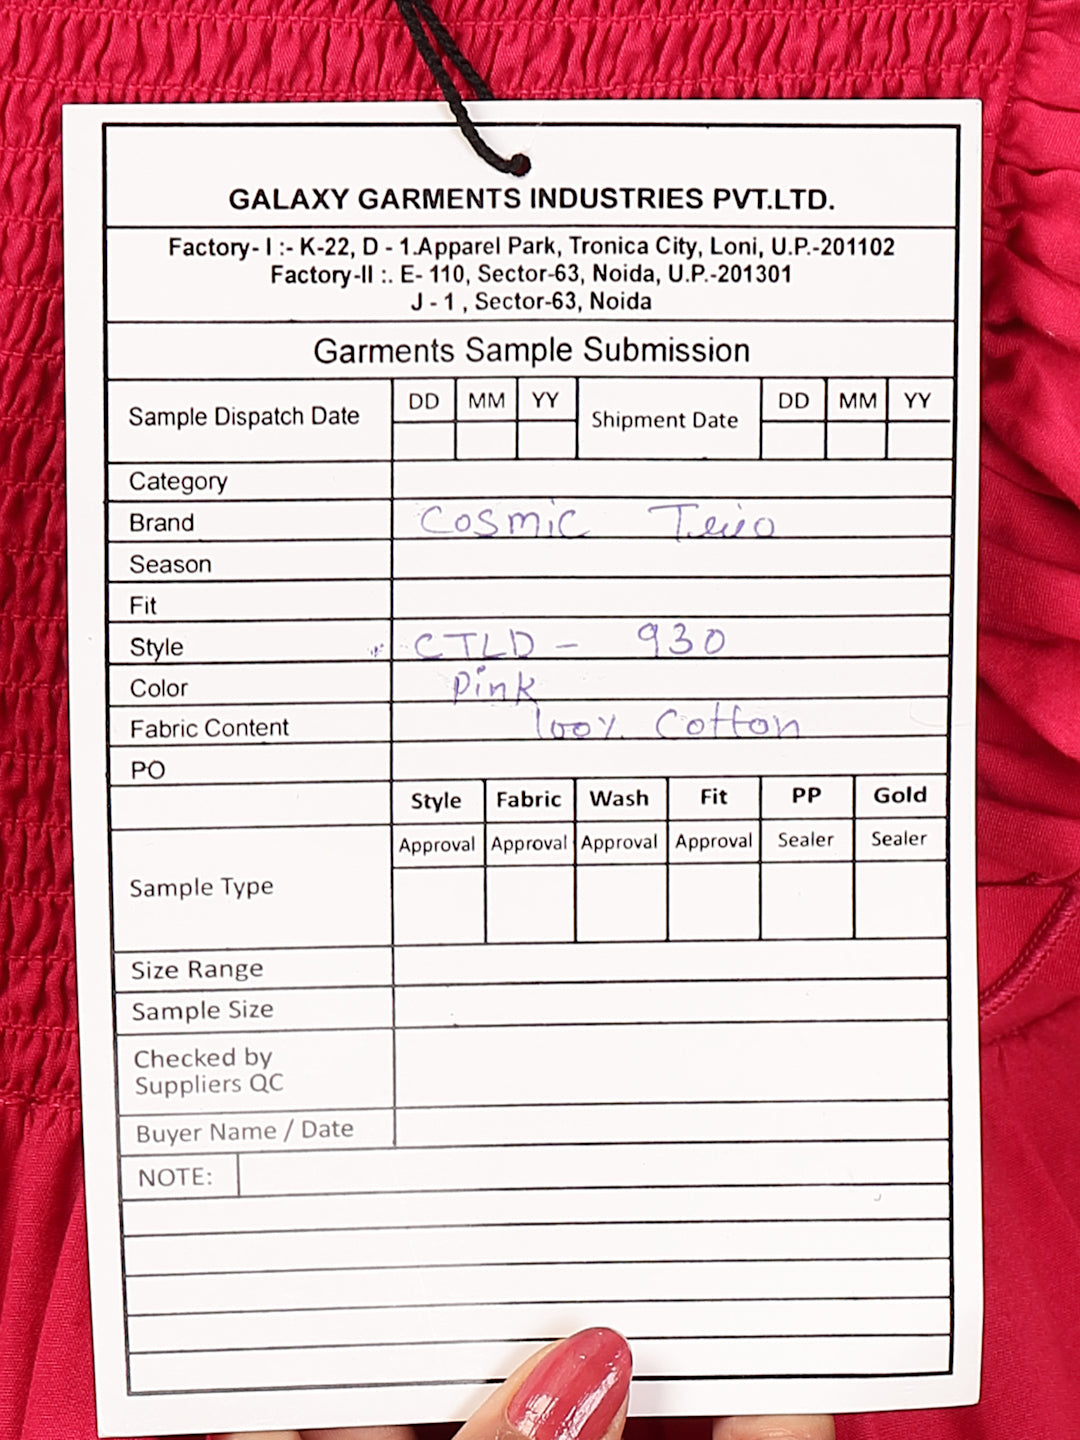 GALAXY GARMENTS INDUSTRIES PVT.LTD.
Factory- I :- K-22, D - 1.Apparel Park, Tronica City, Loni, U.P.-201102
Factory-II :. E- 110, Sector-63, Noida, U.P.-201301
J - 1 , Sector-63, Noida
Garments Sample Submission
Sample Dispatch Date DD MM YY Shipment Date DD MM YY
Category
Brand COSMIC
Season
Fit
Style CTLD - 930
Color Pink
Fabric Content 100% Cotton
PO
Style Fabric Wash Fit PP Gold
Approval Approval Approval Approval Sealer Sealer
Sample Type
Size Range
Sample Size
Checked by
Suppliers QC
Buyer Name / Date
NOTE: